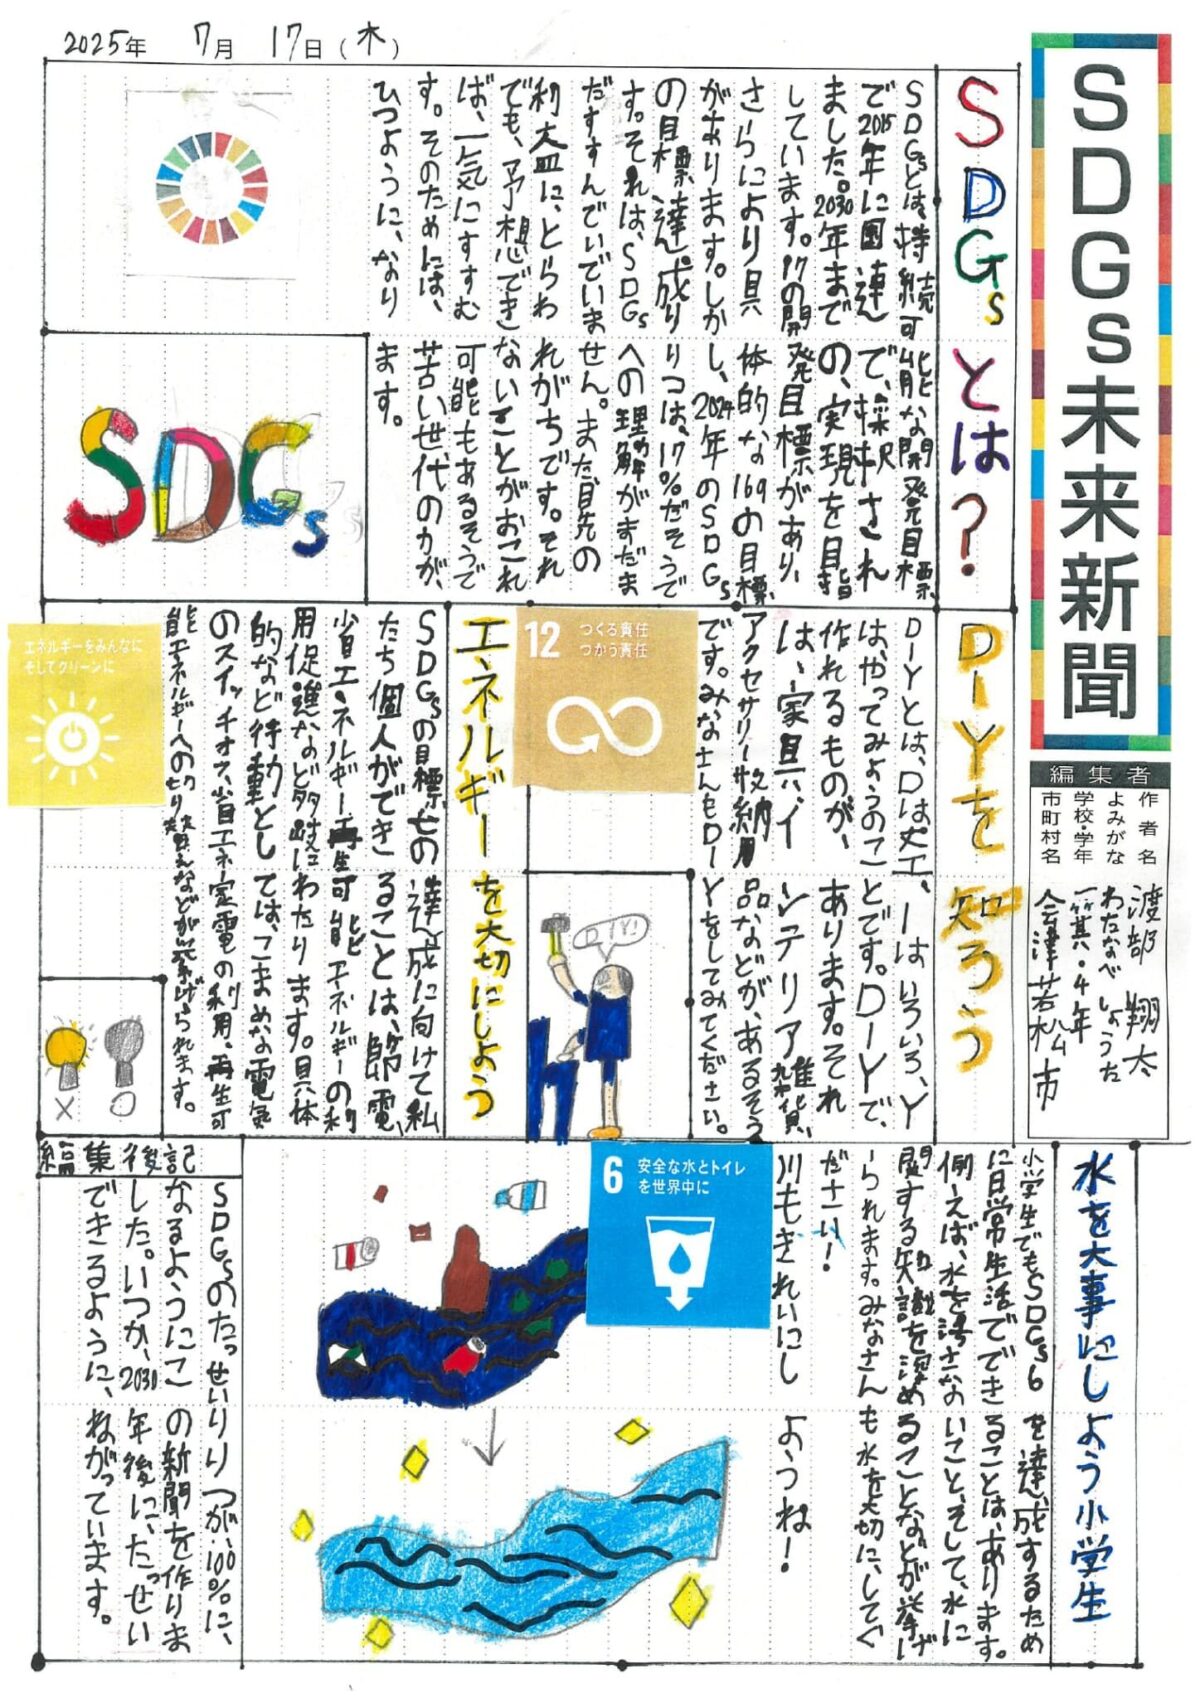 2025年 7月 17日(木)
SDGs未来新聞
編集者
作者名 渡部 翔太
よみがな わたなべ しょうた
学校・学年 一箕・4年
市町村名 会津若松市
SDGsとは？
SDGsとは、持続可能な開発目標
で2015年に国連で、採択され
ました。2030年までの、実現を目指
しています。17の開発目標があり、
さらにより具体的な169の目標
があります。しかし、2024年のSDGs
の目標達成りりつは、17%だそうで
す。それは、SDGsへの理解がまだま
だすすんでいでいません。また目先の
利益に、とらわれがちです。それ
でも、予想できないことがおこれ
ば、一気にすすむ可能もあるそうで
す。そのためには、苦い世代の力が、
ひつように、なります。
SDGs
DIYを知ろう
DIYとは、Dは丈工、Iはいろいろ、Y
は、やってみようのことです。DIYで、
作れるものが、あります。それ
は、家具、インテリア雑貨、
アクセサリー収納用品などが、あるそう
です。みなさんもDIYをしてみてください。
12 つくる責任
つかう責任
DIY!
エネルギーを大切にしよう
SDGsの目標七の達成に向けて私
たち個人ができることは、節電、
省エネルギー再生可能エネルギーの利
用促進など多岐にわたります。具体
的など行動としては、こまめな電気
のスイッチオフ、省エネ家電の利用、再生可
能エネルギーへの切り替えなどが挙げられます。
エネルギーをみんなに
そしてクリーンに
× ○
水を大事にしよう小学生
小学生でもSDGs6を達成するため
に日常生活でできることは、あります。
例えば、水を汚さないこと、そして、水に
関する知識を深めることなどが挙げ
られます。みなさんも水を大切に、してく
ださい！
川もきれいにしようね！
6 安全な水とトイレ
を世界中に
編集後記
SDGsのたっせいりりつが、100%に、
なるようにこの新聞を作りま
した。いつか、2030年後に、たっせい
できるように、ねがっています。